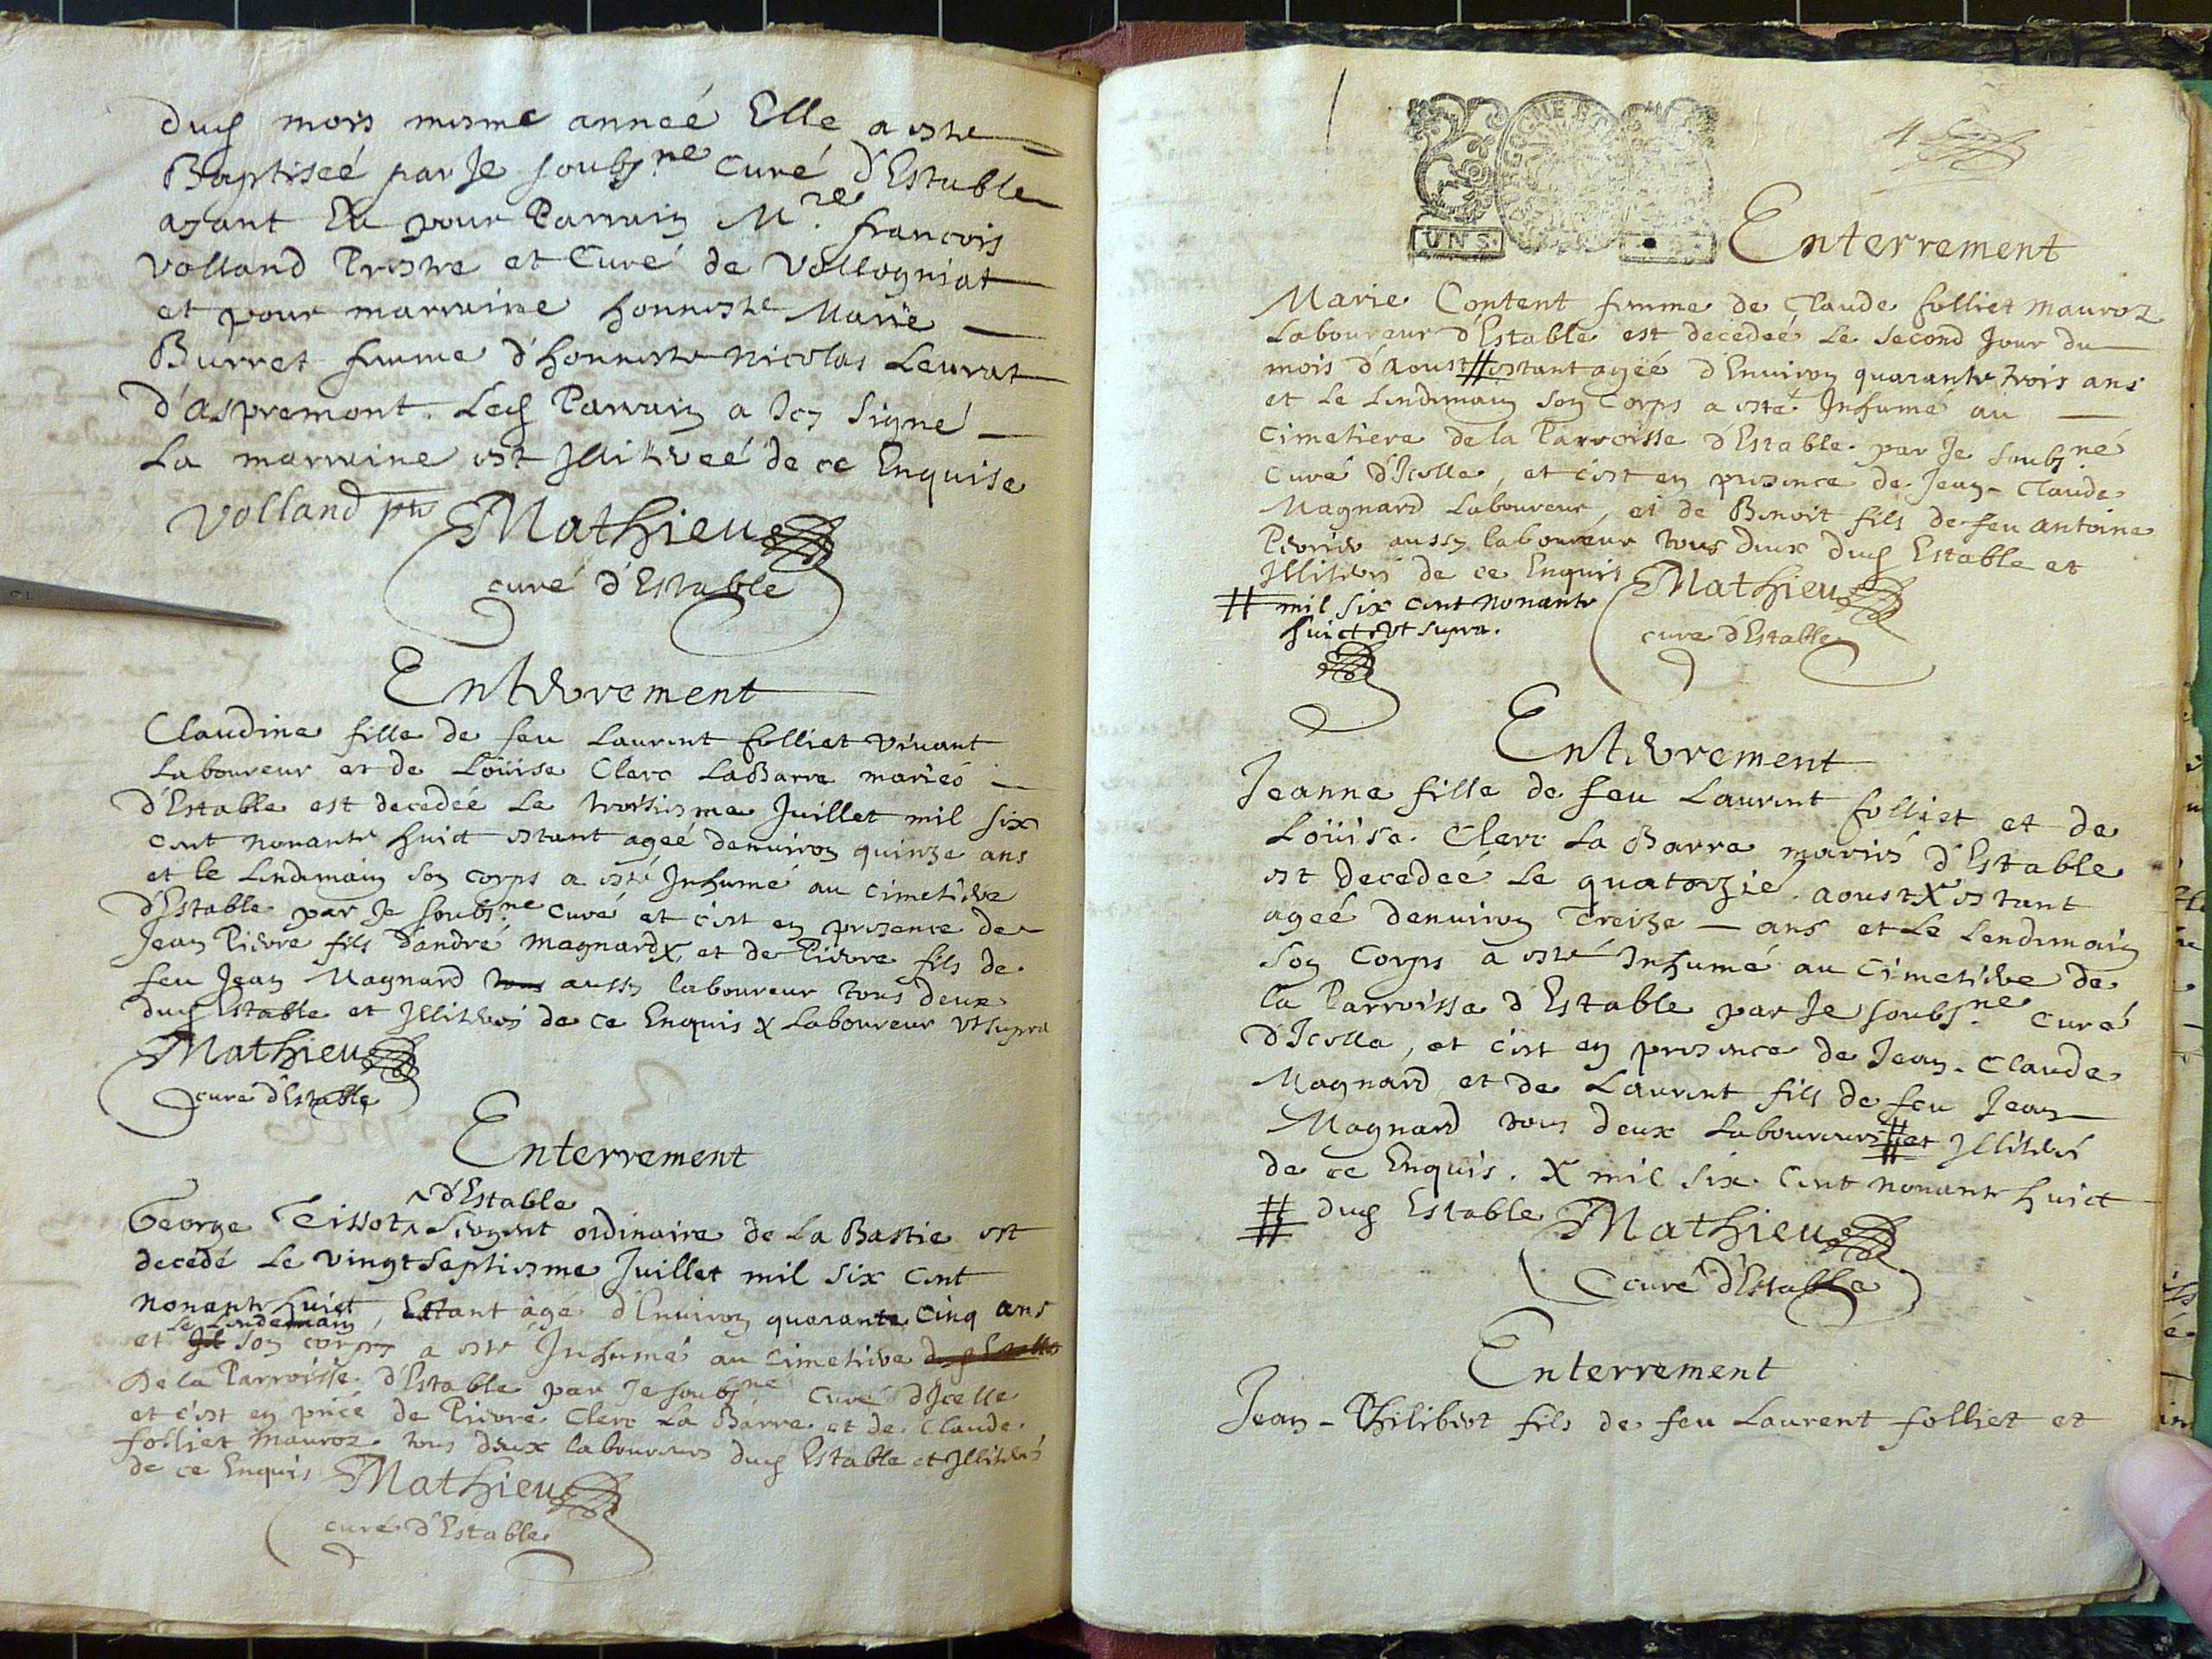 ducj mois mesme anneé Elle a esté
Baptiseé par Je soubs.né Curé d'Estable
ayant Eu pour Parrain M.re francois
Volland Prestre et Curé de Vollogniat
et pour marraine honneste Marie
Burret femme d'honneste Nicolas Leurat
d'aspremont. Lecj Parrain a Icy signé
La marraine est Jllitereé de ce Enquise
Volland ptre Mathieu
curé d'Estable
Enterrement
Claudine fille de feu Laurent folliet vivant
Laboureur et de Loüise Clerc LaBarre mariés
d'Estable est decedeé Le troisiesme Juillet mil six
cent nonante huict estant ageé denuiron quinze ans
et le Lendemain son corps a esté Inhumé au cimetiere
d'Estable par Je soubs.né curé et c'est en presence de
Jean Pierre fils d'andré Magnard X et de Pierre fils de
feu Jean Magnard tous aussy laboureur tous deux
ducj Estable et Jlliterés de ce Enquis X Laboureur Vt supra
Mathieu
curé d'Estable
Enterrement
d'Estable
George Teissot Sergent ordinaire de La Bastie est
decedé Le vingt septiesme Juillet mil six cent
nonante huict, Estant âgé d'Enuiron quarante cinq ans
Le Lendemain
et Jl son corps a esté Inhumé au cimetiere
De la Parroisse d'Estable par Je soubs.né Curé d'Icelle
et c'est en prñce de Pierre Clerc La Barre et de Claude
folliet mauroz tous deux laboureurs ducj Estable et Jlliterés
de ce Enquis Mathieu
curé d'Estable
UN S.
Enterrement
Marie Content femme de Claude folliet mauroz
Laboureur d'Estable est decedeé Le second Jour du
mois d'aoust # estant ageé d'Enuiron quarante trois ans
et Le Lendemain son corps a esté Inhumé au
cimetiere de la Parroisse d'Estable par Je soubs.né
Curé d'Icelle, et c'est en presence de Jean-Claude
Magnard Laboureur, et de Benoit fils de feu antoine
aussy laboureur tous deux ducj Estable et
Jlliterés de ce Enquis Mathieu
# mil six cent nonante
huict Vt supra.
curé d'Estable
Enterrement
Jeanne fille de feu Laurent folliet et de
Loüise Clerc La Barre mariés d'Estable
est decedeé Le quatorzié. aoust X estant
ageé denuiron Treize — ans et Le Lendemain
son Corps a esté Inhumé au Cimetiere de
la Parroisse d'Estable par Je soubs.né Curé
d'Icelle, et c'est en presence de Jean-Claude
Magnard et de Laurent fils de feu Jean
Magnard tous deux Laboureurs # et Jlliterés
de ce Enquis. X mil six cent nonante huict
# ducj Estable Mathieu
curé d'Estable
Enterrement
Jean-Philibert fils de feu Laurent folliet et